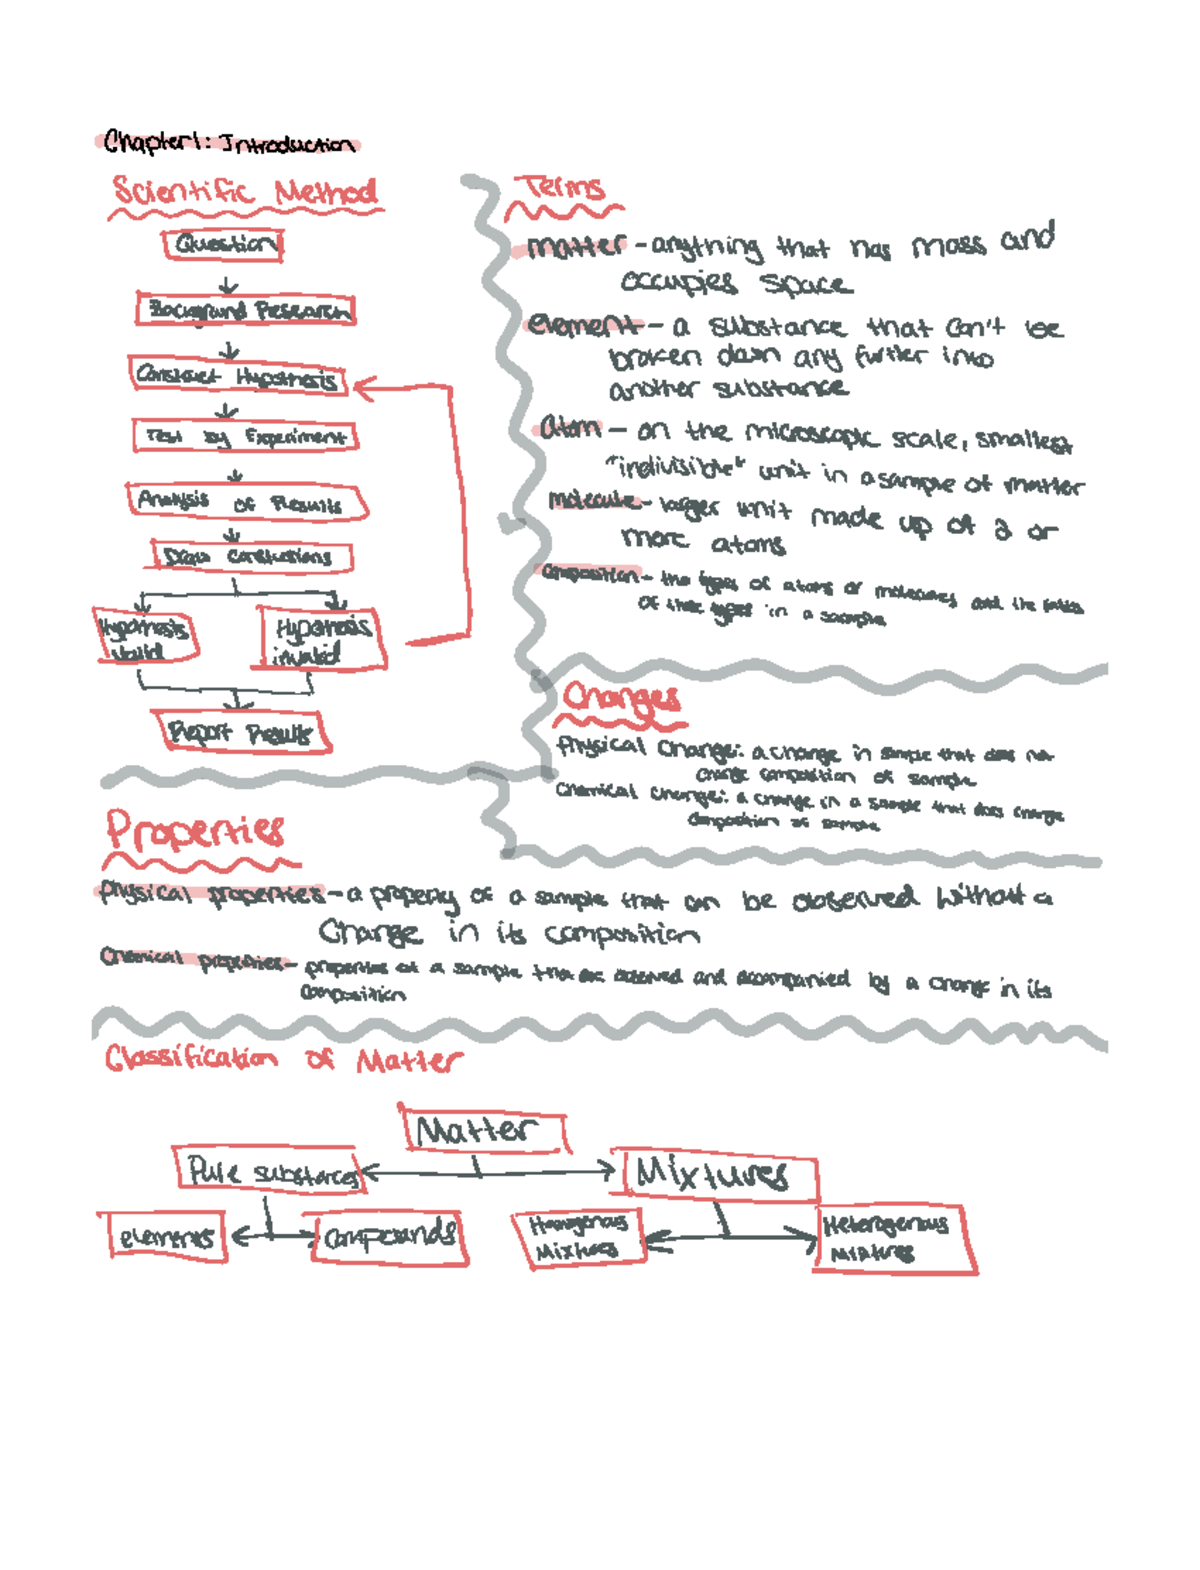 Chapter 1: Introduction
Scientific Method
Question
Background Research
Construct Hypothesis
Test by Experiment
Analysis of Results
Draw Conclusions
Hypothesis
valid
Hypothesis
invalid
Report Results
Terms
matter - anything that has mass and
occupies space
element - a substance that can't be
broken down any further into
another substance
atom - on the microscopic scale, smallest
"indivisible" unit in a sample of matter
molecule - larger unit made up of 2 or
more atoms
composition - the types of atoms or molecules and the
of these types in a sample
Changes
Physical change: a change in sample that does not
change composition of sample
Chemical change: a change in a sample that does change
composition of sample
Properties
physical properties - a property of a sample that can be observed without a
change in its composition
Chemical properties - properties of a sample that are observed and accompanied by a change in its
composition
Classification of Matter
Matter
Pure substances
Mixtures
elements
compounds
Homogenous
Mixtures
Heterogenous
Mixtures